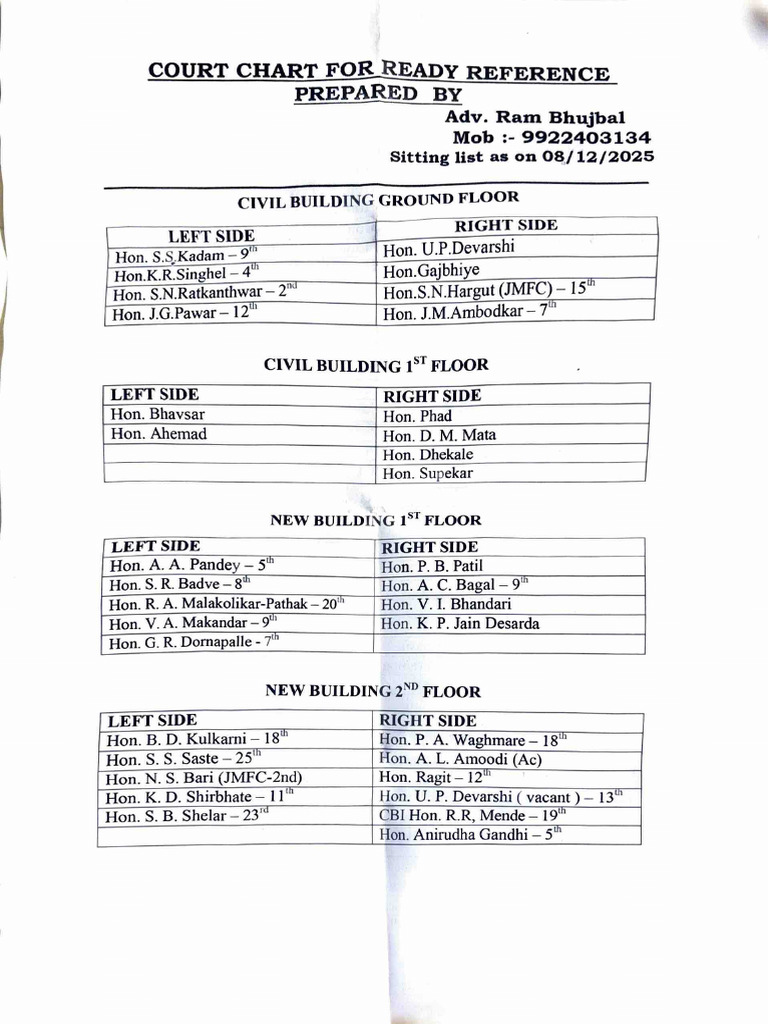 COURT CHART FOR READY REFERENCE
PREPARED BY
Adv. Ram Bhujbal
Mob :- 9922403134
Sitting list as on 08/12/2025
CIVIL BUILDING GROUND FLOOR
LEFT SIDE RIGHT SIDE
Hon. S.S.Kadam – 9th Hon. U.P.Devarshi
Hon.K.R.Singhel – 4th Hon.Gajbhiye
Hon. S.N.Ratkanthwar – 2nd Hon.S.N.Hargut (JMFC) – 15th
Hon. J.G.Pawar – 12th Hon. J.M.Ambodkar – 7th
CIVIL BUILDING 1ST FLOOR
LEFT SIDE RIGHT SIDE
Hon. Bhavsar Hon. Phad
Hon. Ahemad Hon. D. M. Mata
Hon. Dhekale
Hon. Supekar
NEW BUILDING 1ST FLOOR
LEFT SIDE RIGHT SIDE
Hon. A. A. Pandey – 5th Hon. P. B. Patil
Hon. S. R. Badve – 8th Hon. A. C. Bagal – 9th
Hon. R. A. Malakolikar-Pathak – 20th Hon. V. I. Bhandari
Hon. V. A. Makandar – 9th Hon. K. P. Jain Desarda
Hon. G. R. Dornapalle - 7th
NEW BUILDING 2ND FLOOR
LEFT SIDE RIGHT SIDE
Hon. B. D. Kulkarni – 18th Hon. P. A. Waghmare – 18th
Hon. S. S. Saste – 25th Hon. A. L. Amoodi (Ac)
Hon. N. S. Bari (JMFC-2nd) Hon. Ragit – 12th
Hon. K. D. Shirbhate – 11th Hon. U. P. Devarshi ( vacant ) – 13th
Hon. S. B. Shelar – 23rd CBI Hon. R.R, Mende – 19th
Hon. Anirudha Gandhi – 5th